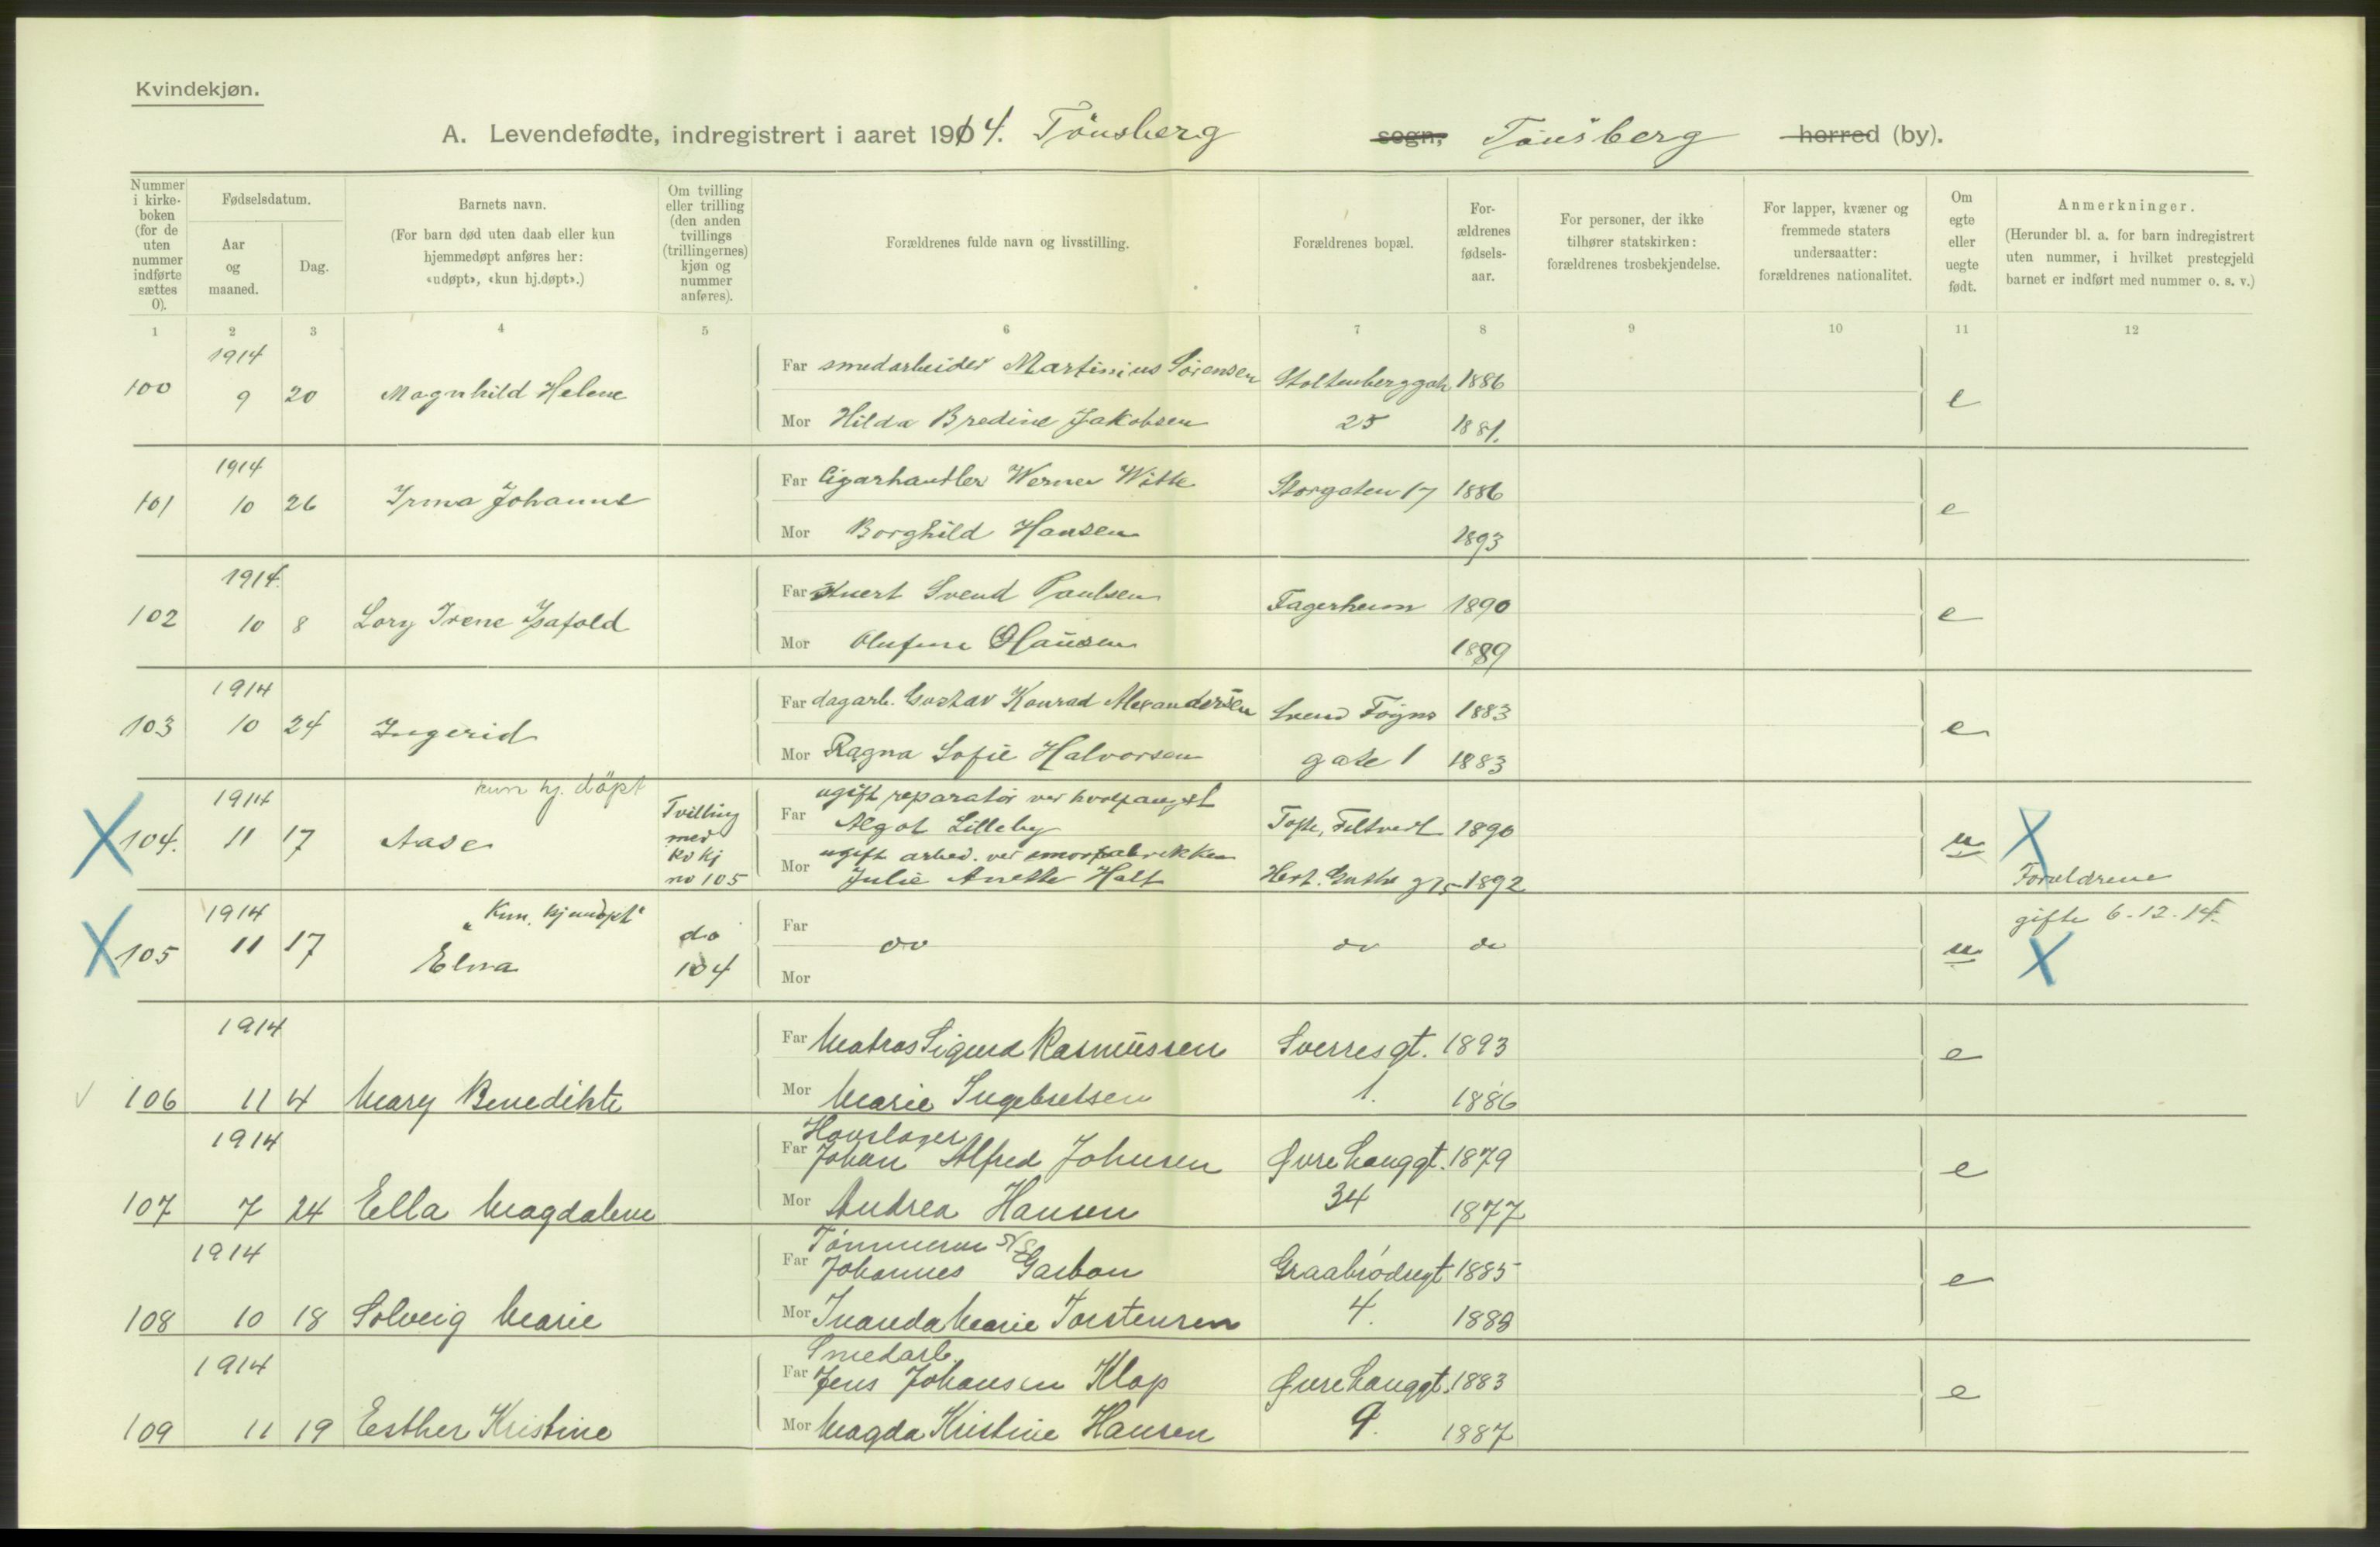 Kvindekjøn.
A. Levendefødte, indregistrert i aaret 1914. Tönsberg sogn, Tönsberg herred (by).
Nummer i kirke-boken (for de uten nummer indførte sættes 0).
Fødselsdatum.
Aar og maaned.
Dag.
Barnets navn.
(For barn død uten daab eller kun hjemmedøpt anføres her: «udøpt», «kun hj.døpt».)
Om tvilling eller trilling (den anden tvillings (trillingernes) kjøn og nummer anføres).
Forældrenes fulde navn og livsstilling.
Forældrenes bopæl.
For-ældrenes fødsels-aar.
For personer, der ikke tilhører statskirken: forældrenes trosbekjendelse.
For lapper, kvæner og fremmede staters undersaatter: forældrenes nationalitet.
Om egte eller uegte født.
Anmerkninger.
(Herunder bl. a. for barn indregistrert uten nummer, i hvilket prestegjeld barnet er indført med nummer o. s. v.)
1 2 3 4 5 6 7 8 9 10 11 12
1914
100 9 20 Magnhild Helene
Far smedarbeider Martinius Sörensen Stoltenberggat 1886
Mor Hilda Bredine Jakobsen 25 1881.
e
1914
101 10 26 Irma Johanne
Far Cigarhandler Werner Witte Storgaten 17 1886
Mor Borghild Hansen 1893
e
1914.
102 10 8 Lory Irene Isafold
Far Svend Paulsen Fagerheim 1890
Mor Olufine Hansen 1889
e
1914
103 10 24 Ingerid
Far dagarb. Gustav Konrad Alexandersen Svend Föyns 1883
Mor Ragna Sofie Halvorsen gate 1 1883
e
1914 kun hj. döpt
104. 11 17 Aase
Tvilling
med
kv kj
no 105
Far ugift reparatör ved hvalfangst
Algot Lilleby Tofte, Filtvedt 1890
Mor ugift arbed. ved smörfabrikken
Julie Anette Halt 1892
u
Forældrene
1914 "Kun hjemdöpt"
105 11 17 Elna
do
104
Far do do do
Mor
u
gifte 6-12-14.
1914
106 11 4 Mary Benedikte
Far Matros Sigurd Rasmussen Sverresgt. 1893
Mor Marie Ingebretsen 1. 1886
e
1914
107 7 24 Ella Magdalene
Hovslager
Far Johan Alfred Johnsen Øvre Langgt. 1879
Mor Andrea Hansen 34 1877
e
1914
108 10 18 Solveig Marie
Tömmerm
Far Johannes Garbon Graabrödregt 1885
Mor Inanda Marie Torstensen 4. 1888
e
1914
109 11 19 Esther Kristine
Smedarb.
Far Jens Johansen Klop Øvre Langgt. 1883
Mor Magda Kristine Hansen 9. 1887
e